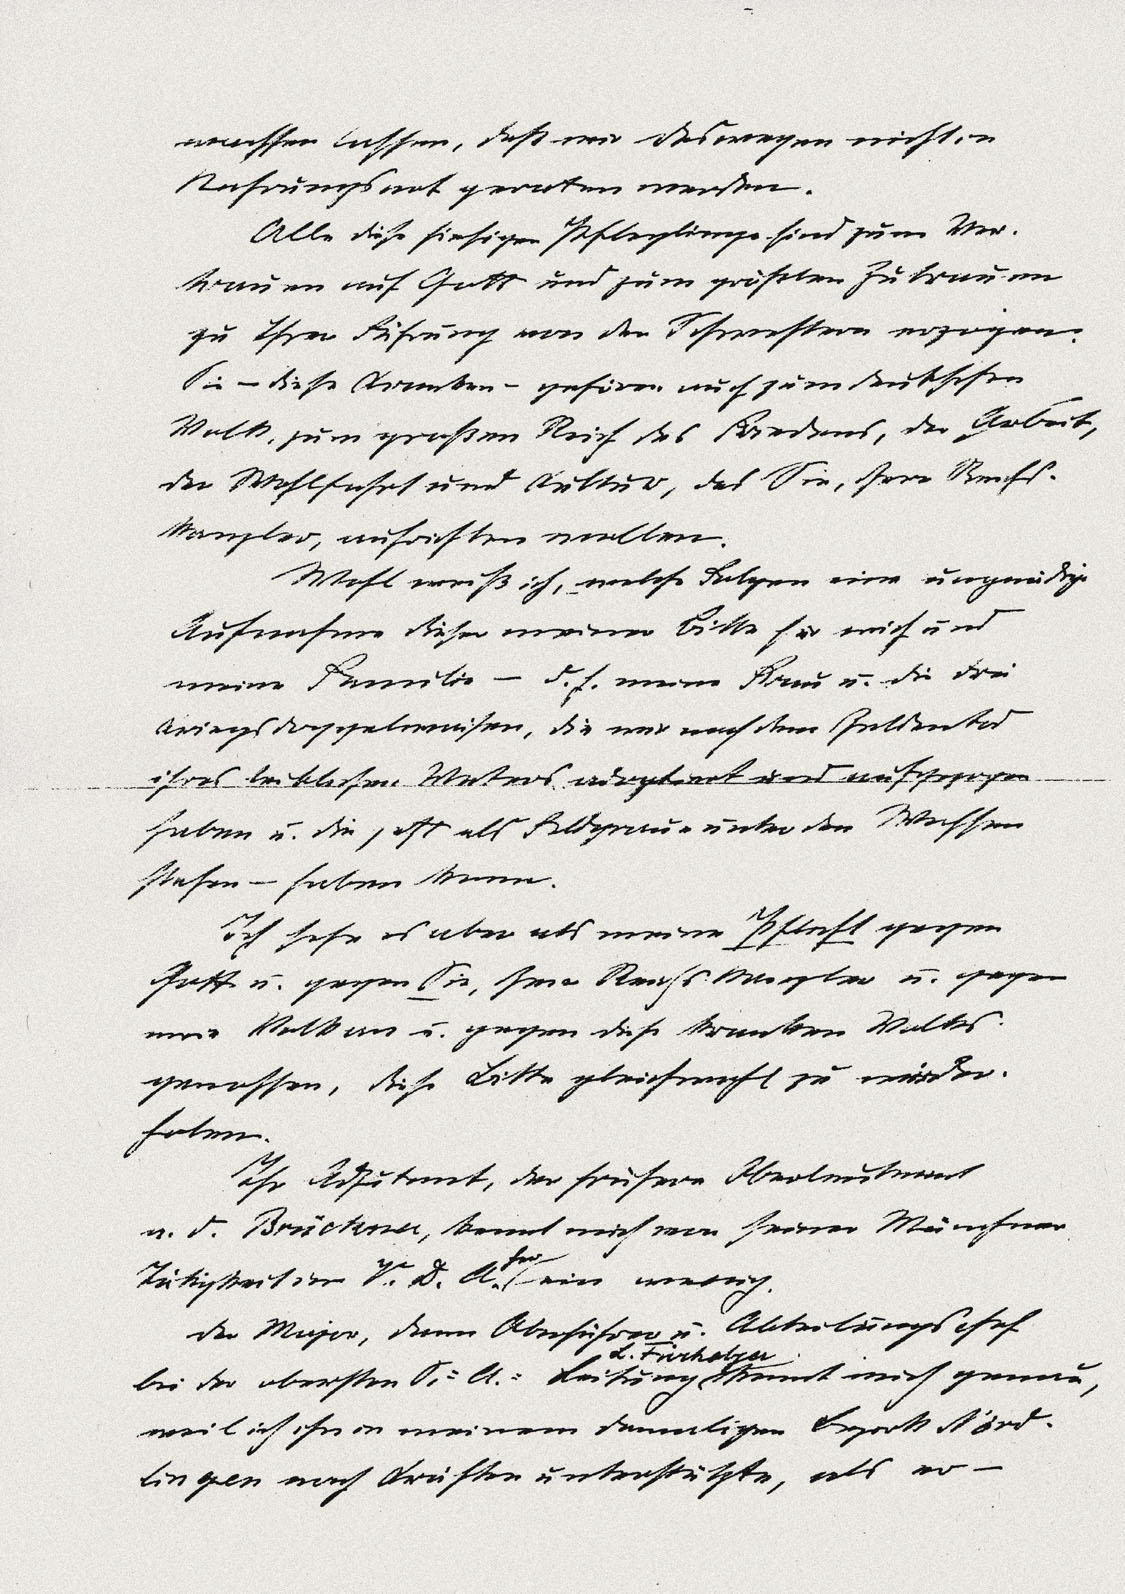 wachsen lassen, daß wir deswegen nicht in
Nahrungsnot geraten werden.
Alle diese hiesigen Pfleglinge sind zum Ver-
trauen auf Gott und zum größten Zutrauen
zu Ihrer Führung von den Schwestern erzogen.
Sie – diese Kranken – gehören auch zum deutschen
Volk, zum großen Reich des Friedens, der Arbeit,
der Wohlfahrt und Kultur, das Sie, Herr Reichs-
kanzler, aufrichten wollen.
Wohl weiß ich, welche Folgen eine ungnädige
Aufnahme dieser meiner Bitte für mich und
meine Familie – d. h. meine Frau u. die drei
Kriegsdoppelwaisen, die wir nach dem Heldentod
ihres leiblichen Vaters adoptiert und aufgezogen
haben u. die jetzt als Feldgraue unter den Waffen
stehen – haben kann.
Ich sehe es aber als meine Pflicht gegen
Gott u. gegen Sie, Herr Reichskanzler u. gegen
mein Volk an u. gegen diese kranken Volks-
genossen, diese Bitte gleichwohl zu wieder-
holen.
Ihr Adjutant, der frühere Oberleutnant
a. D. Brückner, kennt mich von seiner Münchner
Tätigkeit im V. D. A. her ein wenig.
Der Major, dann Oberführer u. Abteilungschef
bei der obersten S.=A.= Leitung L. Fürholzer kennt mich genau,
weil ich ihn in meinem damaligen Bezirk Nörd-
lingen nach Kräften unterstützte, als er –